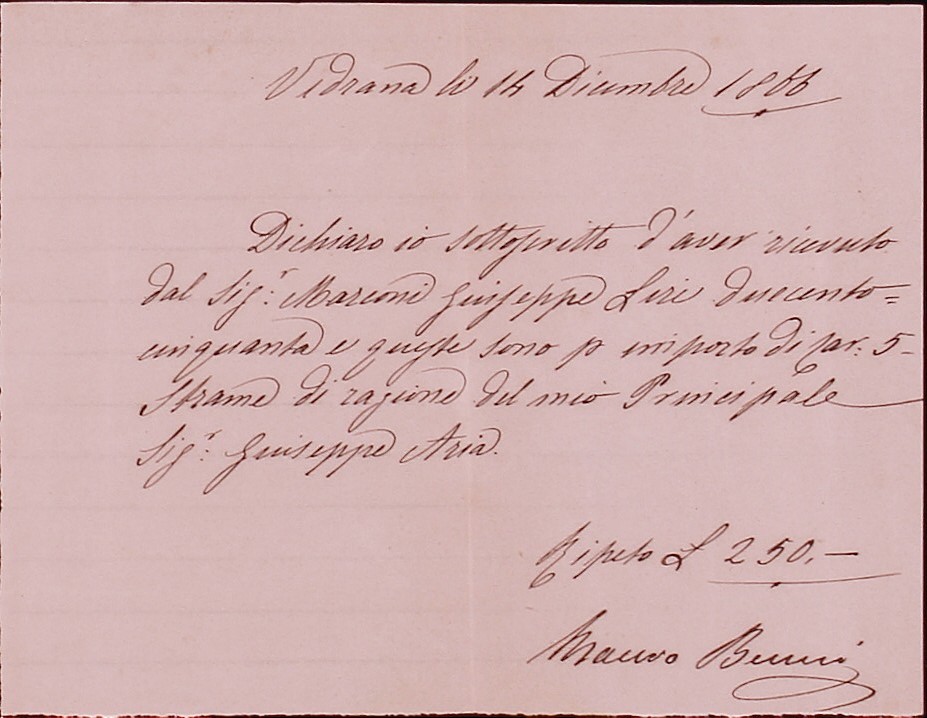 Vedrana li 14 Dicembre 1866
Dichiaro io sottoscritto d'aver ricevuto
dal Sig.r Marconi Giuseppe Lire duecento=
cinquanta e queste sono p importo di Car. 5-
Strame di ragione del mio Principale
Sig.r Giuseppe Aria.
Ripeto L 250.—
Mauro